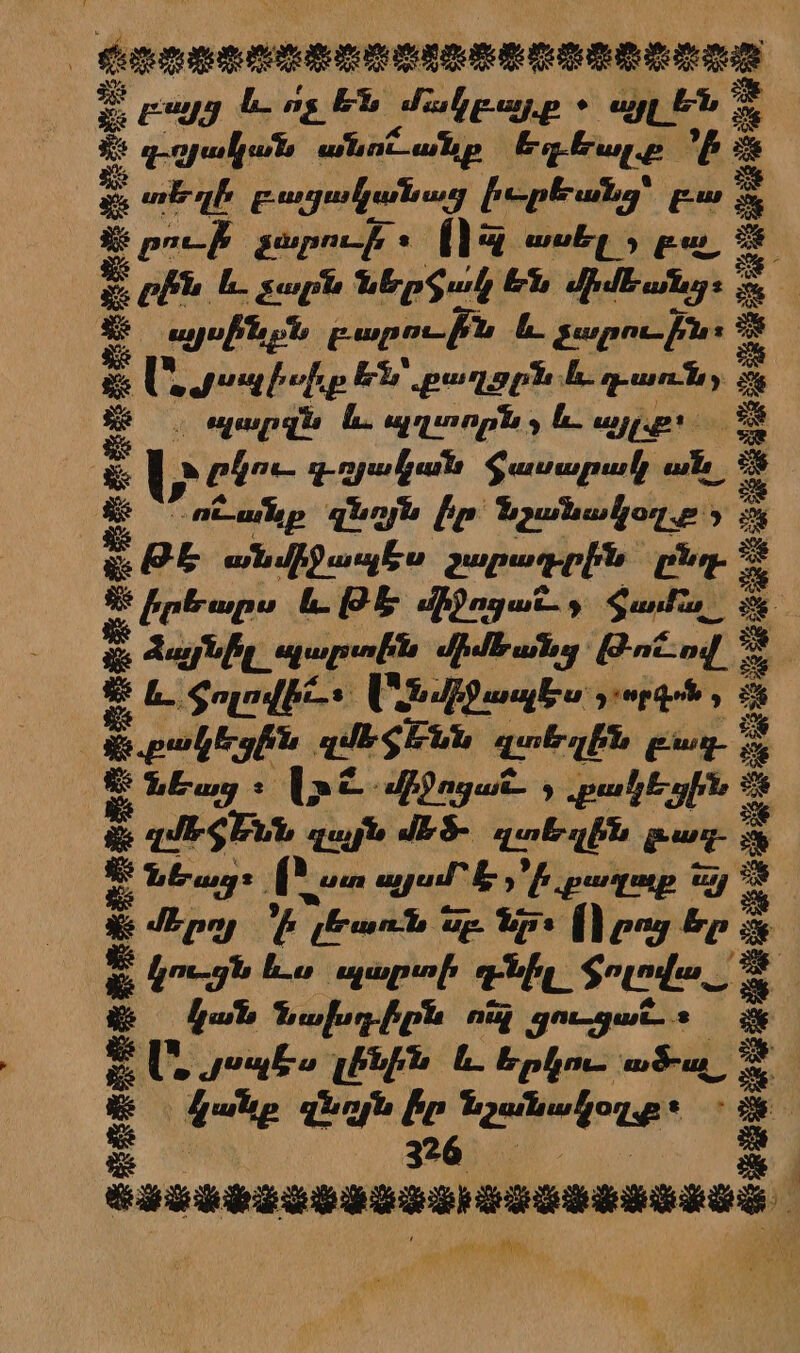 բայց և ո՛չ են մակբայք ։ այլ են
գոյական անուանք եդեալք ՚ի
տեղի բացականաց իւրեանց՝ բա
րու֊ի չարու֊ի ։ Որպ ասել , բա֊
րին և չարն ներհակ են միմեանց։
այսինքն բարու֊ին և չարու֊ին։
Այսպիսիք են՝ քաղցրն և դառն,
պարզն և պղտորն , և այլք։
Երկու գոյական հասարակ ան֊
ուանք զնոյն իր նշանակօղք ,
Թէ անմիջապէս շարադրին ընդ
իրեարս և թէ միջոցաւ , համա֊
ձայնիլ պարտին միմեանց թուով
և հոլովիւ։ Անմիջապէս , օրգոն ,
քակեցին զմեհեանն զտեղին բագ
նեաց ։ Եւ միջոցաւ , քակեցին
զմեհեանն զայն մեծ զտեղին բագ
նեաց։ Ըստ այսմ է , ՚ի քաղաք այ
մերոյ ՚ի լեառն սբ նր։ Որոց եր
կուցն ևս պարտի գնիլ հոլովա֊
կան նախդիրն որպ ցուցաւ ։
Այսպէս լինին և երկու ածա֊
կանք զնոյն իր նշանակօղք։
326